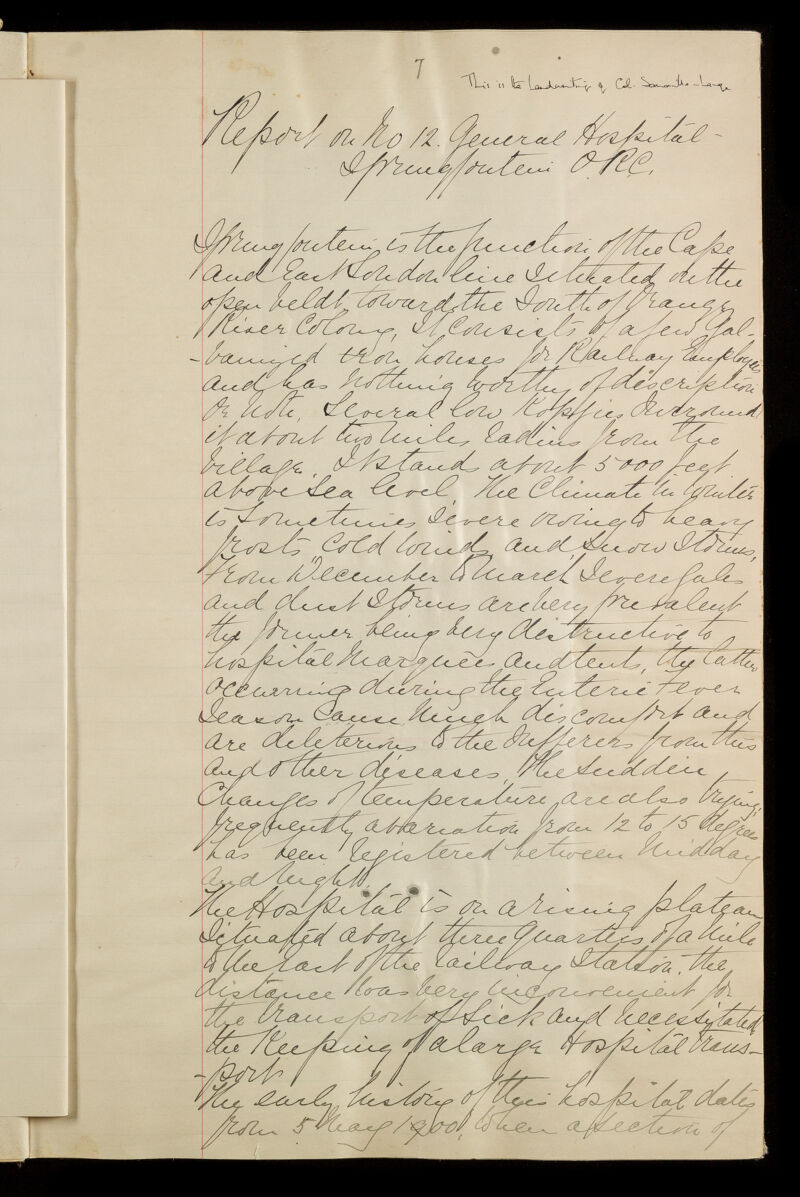 7
This is the handwriting of Col.
Report on No 12. General Hospital -
Springfontein O.R.C.
Springfontein is the junction of the Cape
and East London line Situated on the
open veldt, towards the South of Orange
River Colony, It Consists of a few Gal-
-vanized iron houses for Railway Employees
and has nothing worthy of description
or note, Several low Kopjies Surround
it about two miles radius from the
village. It stands about 5000 feet
above Sea level. The Climate in Winter
is Sometimes Severe owing to heavy
frosts cold winds and Snow Storms,
From December to March Severe Gales
and dust Storms are very prevalent
the former being very destructive to
hospital Marquees and tents, the latter
occurring during the Enteric Fever
Season Cause much discomfort and
are deleterious to the Sufferers from this
and other diseases. The Sudden
Changes of temperature are also trying,
frequently a variation from 12 to 15 degrees
has been registered between Midday
and Night.
The Hospital is on a rising plateau
Situated about three Quarters of a Mile
to the East of the railway Station. the
distance was very inconvenient for
the transport of Sick and necessitated
the Keeping of a large Hospital trans-
-port
The early history of this hospital dates
from 5 May 1900, when a section of